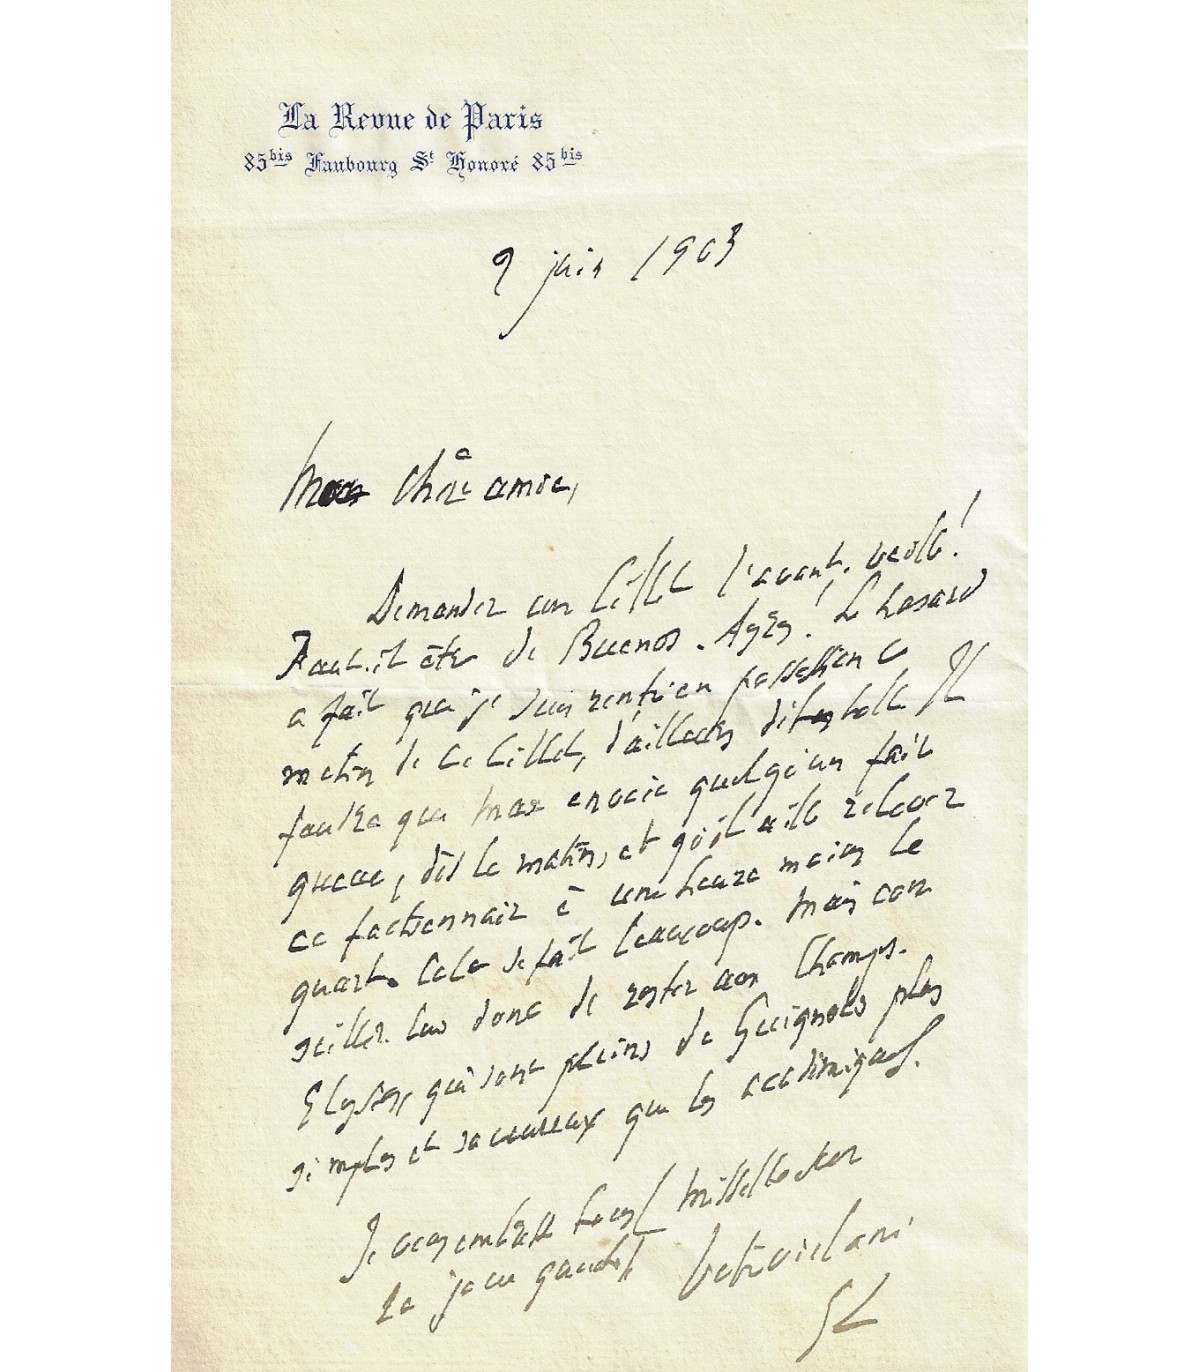 La Revue de Paris
85bis Faubourg St Honoré 85bis
9 juin 1903
Ma chère amie,
Demander un billet l'avant-veille!
Faut-il être de Buenos-Ayres! Le hasard
a fait que je suis rentré en possession ce
matin de ce billet, d'ailleurs détestable. Il
faudra que Max envoie quelqu'un faire
queue, dès le matin, et qu'il aille relever
ce factionnaire à une heure moins le
quart. Cela se fait beaucoup. Mais con
seillez lui donc de rester aux Champs-
Elysées, qui sont pleins de Guignols plus
simples et savoureux que les académiques.
Je vous embrasse tous
la joue gauche. Votre vieil ami
GL